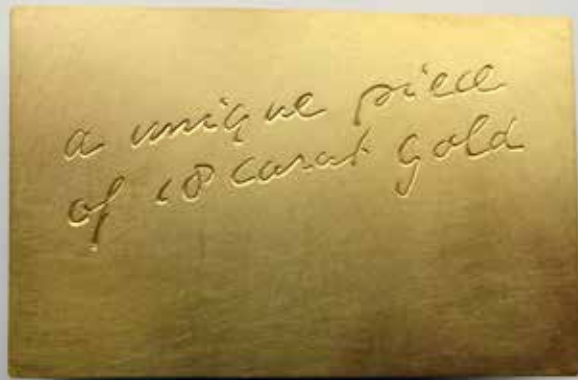 a unique piece
of 18 carat gold